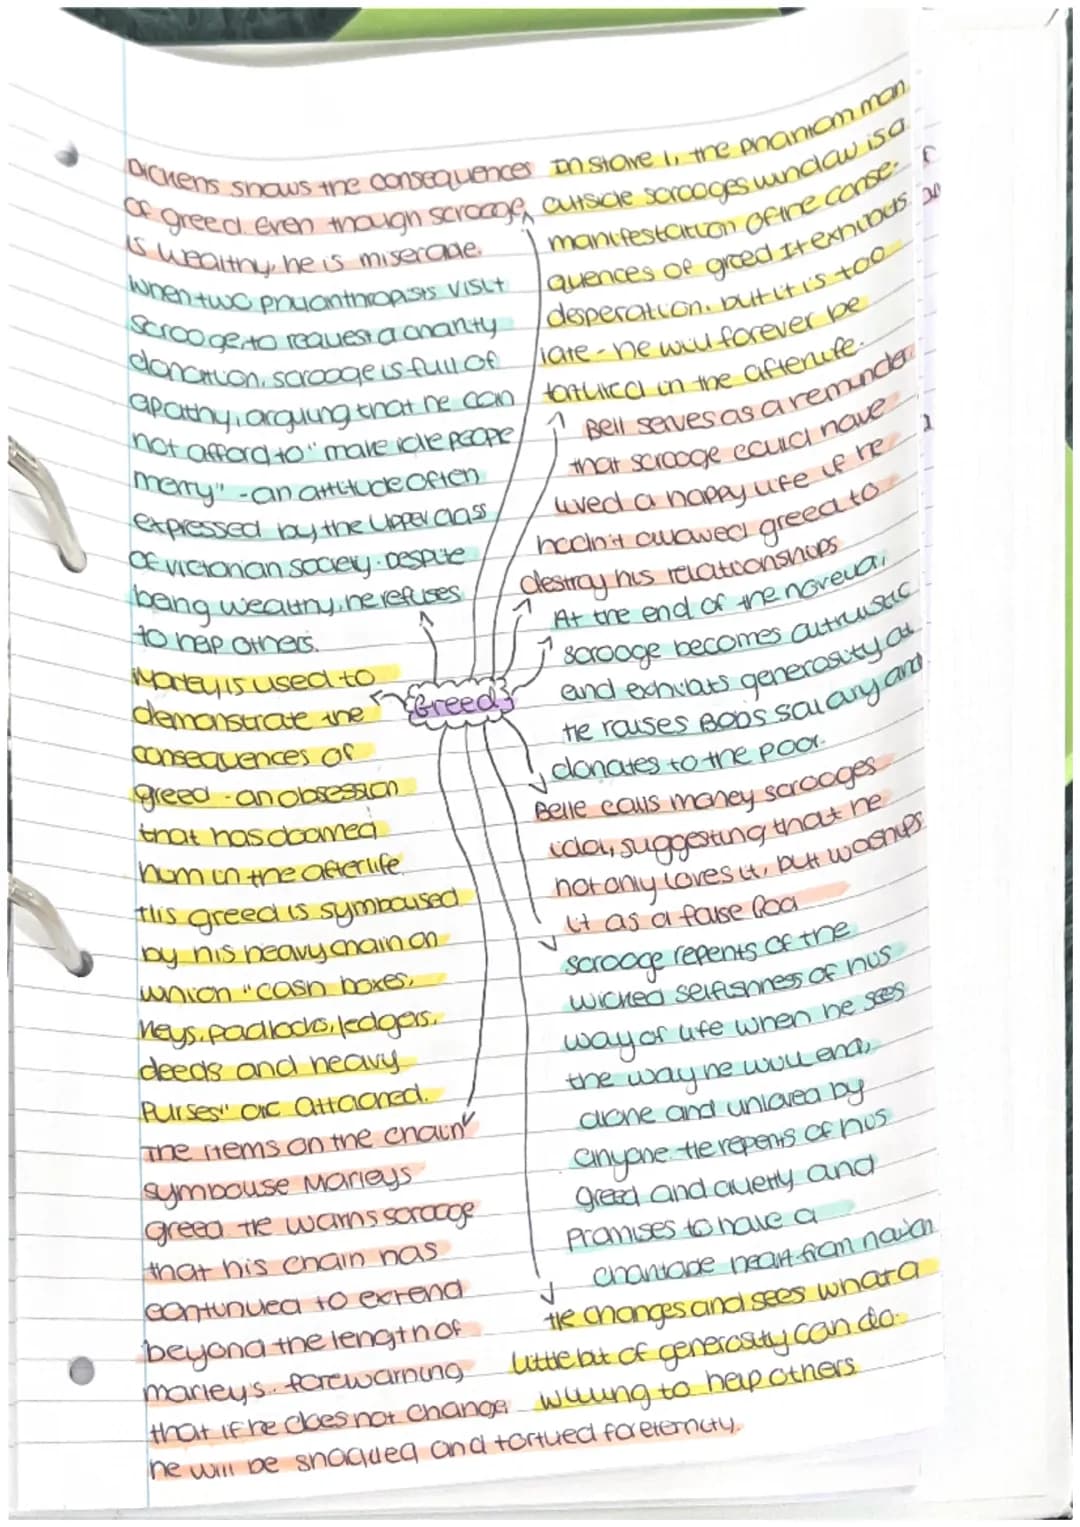 Dickens shows the consequences
of greed. Even though scrooge
is wealthy, he is miserable.
when two philanthropists visit
scrooge, to request a charity
donation, scrooge is full of
apathy, arguing that he can
not afford to "make idle people
merry" - an attitude often
expressed by the Upper class
of victorian society. Despite
being wealthy, he refuses
to help others.
Marley is used to
demonstrate the
consequences of
greed - an obsession
that has doomed
him in the afterlife.
His greed is symbolised
by his heavy chain on
which "cash boxes,
keys, padlocks, ledgers,
deeds and heavy
purses" are attached.
The items on the chain
symbolise Marleys
greed. He warns scrooge
that his chain has
continued to extend
beyond the length of
marley's. forewarning
that if he does not change
he will be shackled and tortued for eternity.
Greed
In stave 1, the phantom man
outside scrooges window is a
manifestation of the conse-
quences of greed. It exhibits
desperation, but it is too
late - he will forever be
tortured in the afterlife.
Bell serves as a reminder
that scrooge could have
lived a happy life if he
hadn't allowed greed to
destroy his relationships
At the end of the novella,
scrooge becomes altruistic
and exhibits generosity at
He raises Bobs salary and
donates to the poor.
Belle calls money scrooges
idol, suggesting that he
not only loves it, but worships
it as a false God
scrooge repents of the
wicked selfishness of his
way of life when he sees
the way he will end,
alone and unloved by
anyone. He repents of his
greed and cruelty and
promises to have a
charitable heart from now on
He changes and sees what a
little bit of generosity can do.
willing to help others